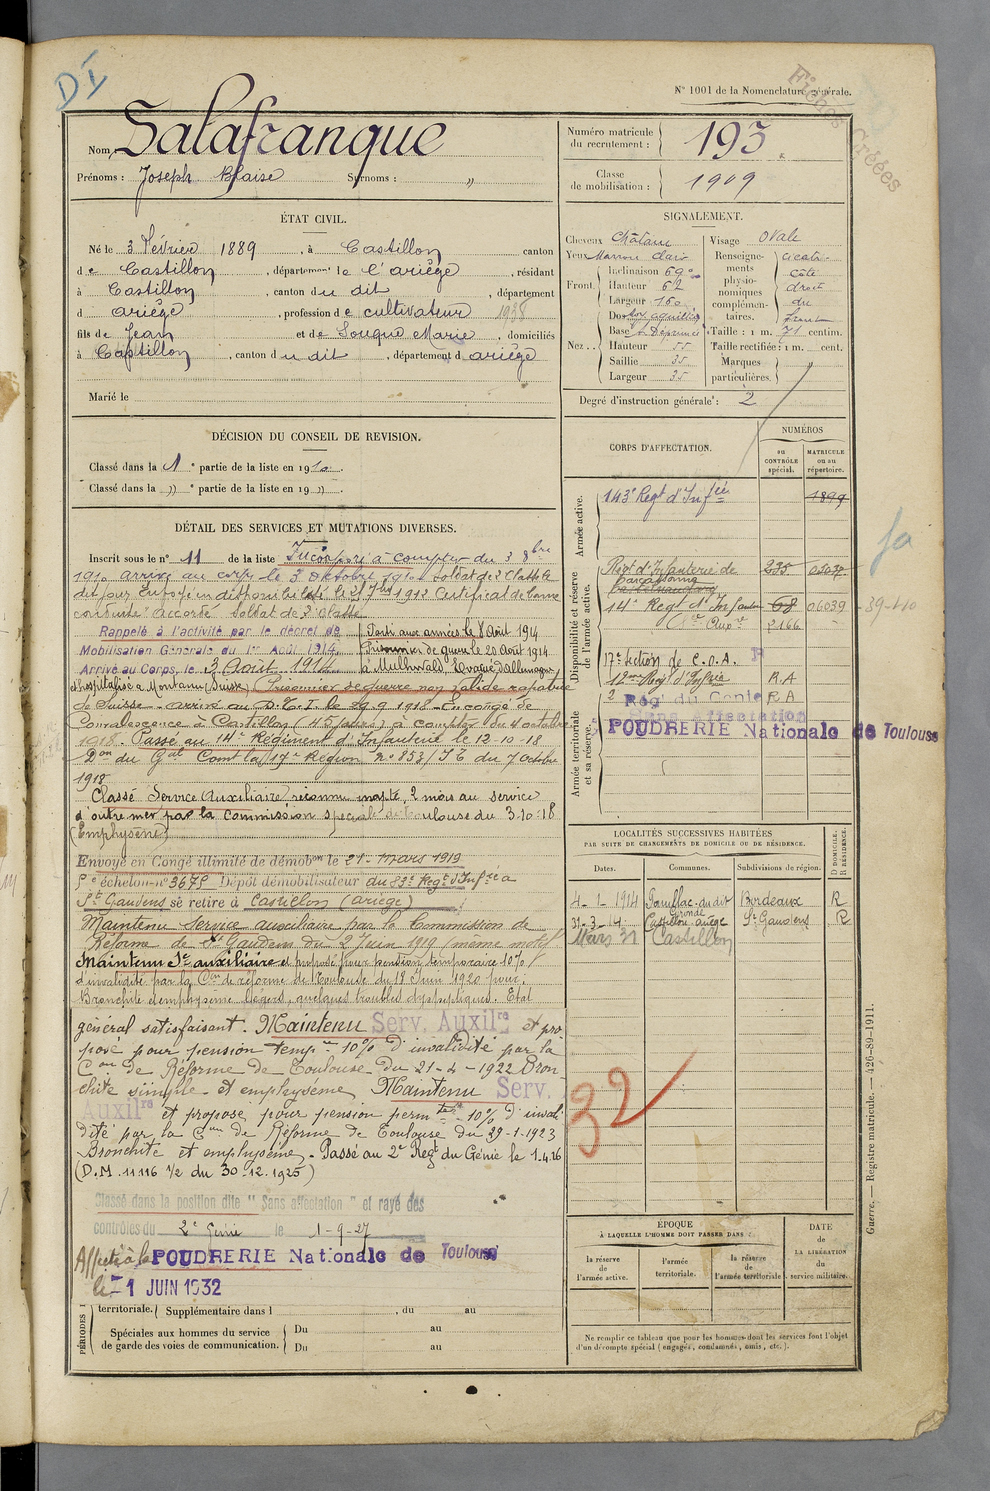 DI
N° 1001 de la Nomenclature générale.
Fiches Créées
Nom : Salafranque
Prénoms : Joseph Blaise Surnoms : "
Numéro matricule du recrutement : 193
Classe de mobilisation : 1909
ÉTAT CIVIL.
Né le 3 Février 1889, à Castillon canton
de Castillon, département de l'ariège, résidant
à Castillon, canton du dit, département
d ariège, profession de cultivateur 1938
fils de Jean et de Souque Marie, domiciliés
à Castillon, canton du dit, département d ariège
Marié le
SIGNALEMENT.
Cheveux Châtain
Yeux Marron clair
Front.
Inclinaison 69
Hauteur 62
Largeur 160
Nez..
Dos aquilin
Base Déprimée
Hauteur 55
Saillie 35
Largeur 35
Visage Ovale
Renseignements physionomiques complémentaires. cicatr. côté droit du front
Taille : 1 m. 71 centim.
Taille rectifiée : 1 m. cent.
Marques particulières.
Degré d'instruction générale : 2
DÉCISION DU CONSEIL DE REVISION.
Classé dans la 1e partie de la liste en 1910.
Classé dans la " e partie de la liste en 19 ".
CORPS D'AFFECTATION.
NUMÉROS
au CONTRÔLE spécial.
MATRICULE ou au répertoire.
Armée active.
143e Regt d'Infrie 1899
Disponibilité et réserve de l'armée active.
Regt d'Infanterie de 235
Carcassonne
14e Regt d'Infanterie 68 06039 -39-40
Son Auxre 2166
17e Section de C.O.A.
Armée territoriale et sa réserve.
12me Regt d'Infrie R.A
2 Rég du Génie R.A
Sans affectation
POUDRERIE Nationale de Toulouse
DÉTAIL DES SERVICES ET MUTATIONS DIVERSES.
Inscrit sous le n° 11 de la liste Incorporé à compter du 3 8bre
1910 arrivé au corps le 3 octobre 1910 Soldat de 2e classe le
dit jour Envoyé en disponibilité le 25 7bre 1912 Certificat de bonne
conduite "accordé" Soldat de 2e classe
Rappelé à l'activité par le décret de
Mobilisation Générale du 1er Août 1914.
Arrivé au Corps le 3 Août 1914
Parti aux armées le 8 Août 1914
Prisonnier de guerre le 20 Août 1914
à Mulhwald, Lovague d'allemagne
hospitalisé à Montana (Suisse) Prisonnier de guerre non valide rapatrié
de Suisse - arrivé au D.C.I. le 29.9 1918 - En congé de
Convalescence à Castillon (45 jours) à compter du 4 octobre
1918. Passé au 14e Régiment d'Infanterie le 12-10-18
Don du Gal Comt la 17e Région n° 853/I6 du 7 octobre
1918
Classé Service Auxiliaire reconnu inapte, 2 mois au service
d'outre mer par la Commission spéciale de Toulouse du 3-10-18
(Emphysème)
Envoyé en Congé illimité de démobon le 21 - mars 1919
5e échelon n° 3675 Dépôt démobilisateur du 83e Regt d'Infrie à
St Gaudens se retire à Castillon (ariège)
Maintenu Service auxiliaire par la Commission de
Réforme de St Gaudens du 2 Juin 1919 (même motif)
Maintenu Sce auxiliaire et proposé pour pension temporaire 10%
d'invalidité par la Con de réforme de Toulouse du 18 Juin 1920 pour:
Bronchite et emphysème légers, quelques troubles dyspeptiques. Etat
général satisfaisant. Maintenu Serv. Auxilre et pro
posé pour pension tempre 10% d'invalidité par la
Con de Réforme de Toulouse du 21-4-1922 Bron
chite simple et emphysème Maintenu Serv.
Auxilre et proposé pour pension permte 10% d'inval
dité par la Con de Réforme de Toulouse du 29-1-1923
Bronchite et emphysème. Passé au 2e Regt du Génie le 1.4.26
(D.M. 11116 1/2 du 30-12-1925)
Classé dans la position dite " Sans affectation " et rayé des
contrôles du 2e Génie le 1-9-27
Affecté à la POUDRERIE Nationale de Toulouse
le - 1 JUIN 1932
LOCALITÉS SUCCESSIVES HABITÉES
PAR SUITE DE CHANGEMENTS DE DOMICILE OU DE RÉSIDENCE.
Dates. Communes. Subdivisions de région. D. DOMICILE. R. RÉSIDENCE.
4-1 1914 Bordeaux R
Gironde
31-3-14 Castillon ariège St Gaudens R
Mars 31 Castillon
32
ÉPOQUE
À LAQUELLE L'HOMME DOIT PASSER DANS :
la réserve de l'armée active.
l'armée territoriale.
la réserve de l'armée territoriale.
DATE de LA LIBÉRATION du service militaire.
PÉRIODES
territoriale. Supplémentaire dans l , du au
Spéciales aux hommes du service de garde des voies de communication.
Du au
Du au
Ne remplir ce tableau que pour les hommes dont les services font l'objet
d'un décompte spécial (engagés, condamnés, omis, etc.).
Guerre. — Registre matricule. — 426-89-1911.